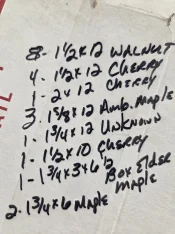 8- 1 1/2 x 12 WALNUT
4- 1 1/2 x 12 CHERRY
1- 2 x 12 CHERRY
3- 1 5/8 x 12 Amb. Maple
1- 1 3/4 x 12 UNKNOWN
1- 1 1/2 x 10 CHERRY
1- 1 3/4 x 3 x 6 1/2 Box Elder
MAPLE
2- 1 3/4 x 6 MAPLE